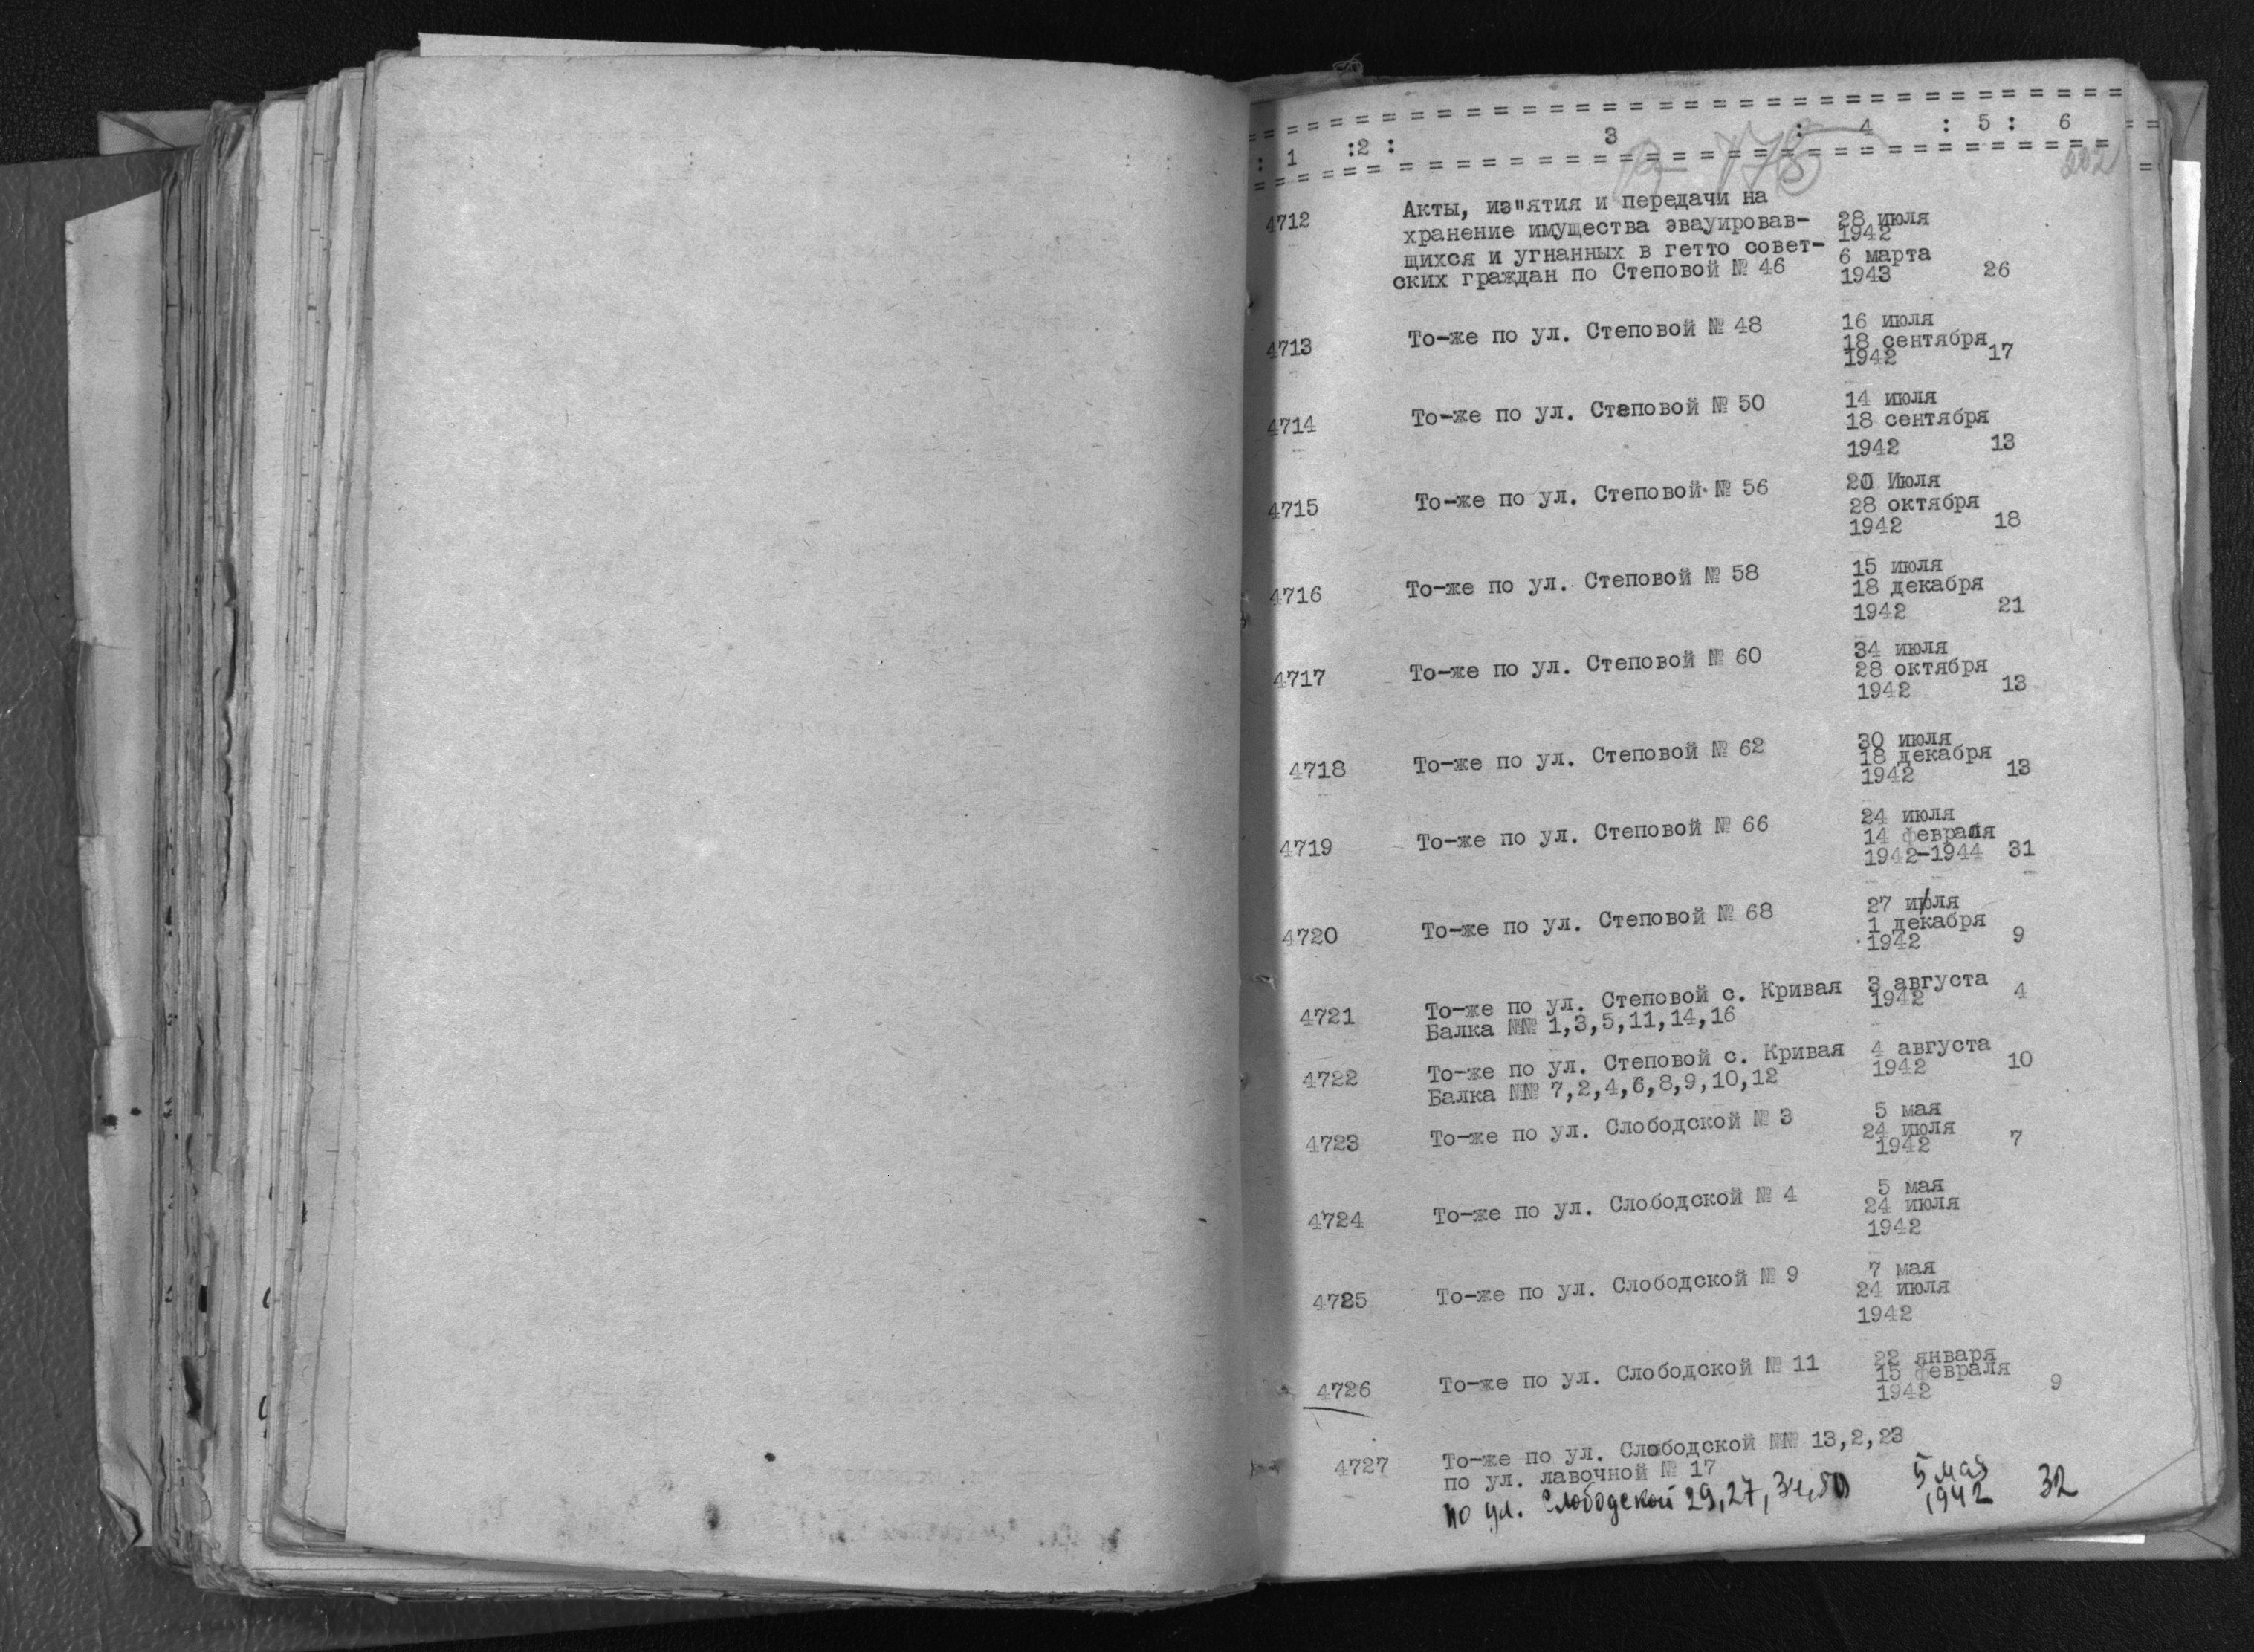 : 1 :2 : 3 : 4 : 5 : 6
202
4712 Акты, из"ятия и передачи на
хранение имущества эвауировав- 28 июля
1942
щихся и угнанных в гетто совет- 6 марта
ских граждан по Степовой № 46 1943 26
4713 То-же по ул. Степовой № 48 16 июля
18 сентября
1942 17
4714 То-же по ул. Степовой № 50 14 июля
18 сентября
1942 13
4715 То-же по ул. Степовой № 56 20 Июля
28 октября
1942 18
4716 То-же по ул. Степовой № 58 15 июля
18 декабря
1942 21
4717 То-же по ул. Степовой № 60 34 июля
28 октября
1942 13
4718 То-же по ул. Степовой № 62 30 июля
18 декабря
1942 13
4719 То-же по ул. Степовой № 66 24 июля
14 февраля
1942-1944 31
4720 То-же по ул. Степовой № 68 27 июля
1 декабря
1942 9
4721 То-же по ул. Степовой с. Кривая 3 августа
Балка №№ 1,3,5,11,14,16 1942 4
4722 То-же по ул. Степовой с. Кривая 4 августа
Балка №№ 7,2,4,6,8,9,10,12 1942 10
4723 То-же по ул. Слободской № 3 5 мая
24 июля
1942 7
4724 То-же по ул. Слободской № 4 5 мая
24 июля
1942
4725 То-же по ул. Слободской № 9 7 мая
24 июля
1942
4726 То-же по ул. Слободской № 11 22 января
15 февраля
1942 9
4727 То-же по ул. Слободской №№ 13,2,23
по ул. лавочной № 17 5 мая
по ул. Слободской 29,27, 1942 32